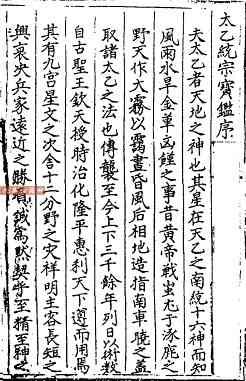 太乙統宗寶鑑序
夫太乙者天地之神也其星在天乙之南統十六神而知
風雨水旱金革凶饉之事昔黃帝戰蚩尤于涿鹿之
野天作大霧以靄晝昏風后相地造指南車曉之蓋
取諸太乙之法也傳襲至今上下三千餘年列日以術數
自古聖王欽天授時治化隆平惠利天下遵而用焉
其有九宮星文之次舍十二分野之災祥明主客長短之
興衰决兵家遠近之勝負誠為默契乎至精至神之